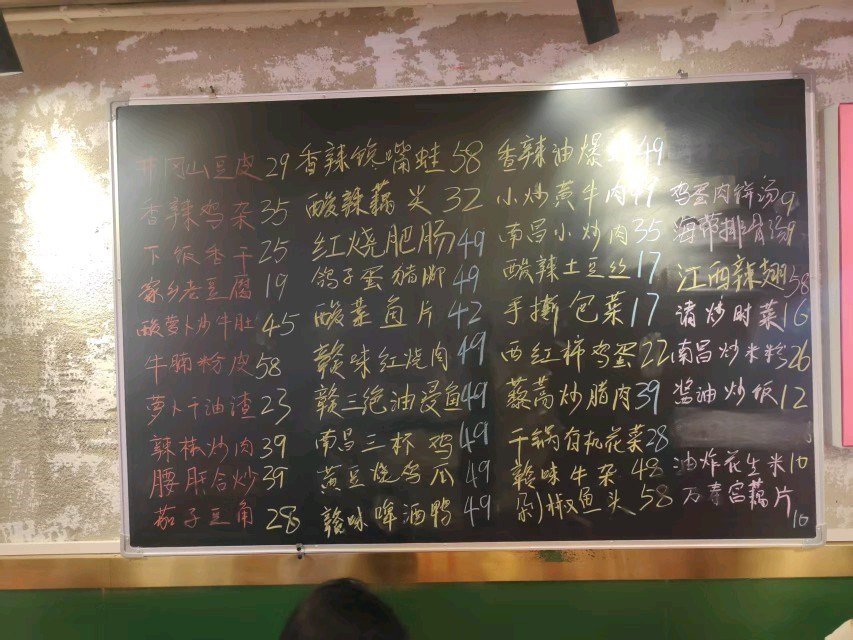 井冈山豆皮 29
香辣鸡杂 35
下饭香干 25
家乡老豆腐 19
酸萝卜炒牛肚 45
牛腩粉皮 58
萝卜干油渣 23
辣椒炒肉 39
腰肝合炒 39
茄子豆角 28
香辣馋嘴蛙 58
酸辣藕尖 32
红烧肥肠 49
鸽子蛋猪脚 49
酸菜鱼片 42
赣味红烧肉 49
赣三绝油浸鱼 49
南昌三杯鸡 49
黄豆烧鸡爪 49
赣味啤酒鸭 49
香辣油爆 49
小炒黄牛肉
南昌小炒肉 35
酸辣土豆丝 17
手撕包菜 17
西红柿鸡蛋 22
藜蒿炒腊肉 39
干锅有机花菜 28
赣味牛杂 48
剁椒鱼头 58
鸡蛋肉饼汤 9
海带排骨汤 9
江西辣翅 58
清炒时菜 16
南昌炒米粉 26
酱油炒饭 12
油炸花生米 10
万寿宫藕片
10